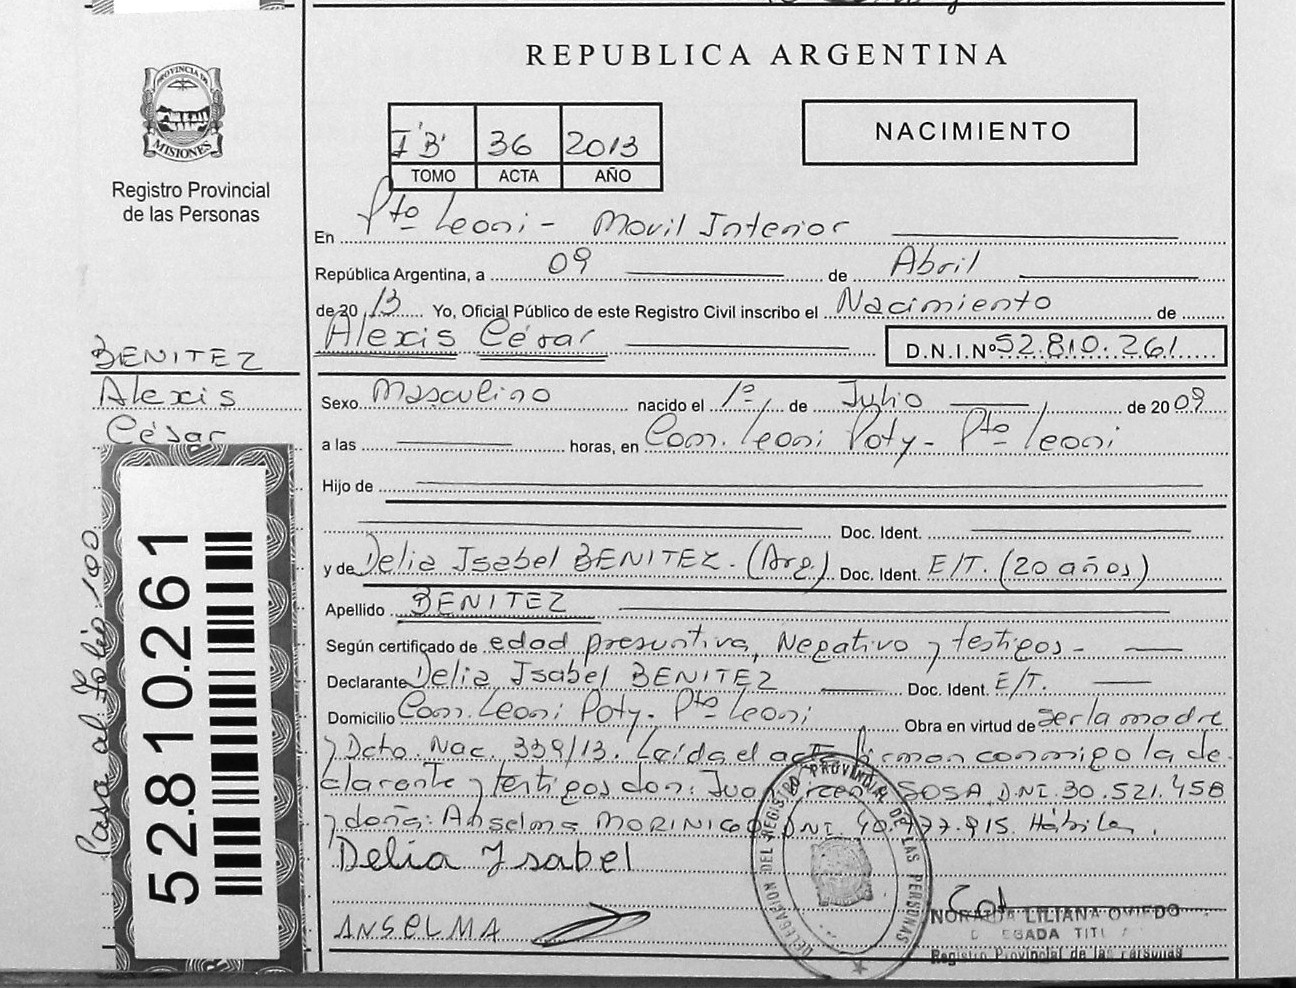 REPUBLICA ARGENTINA
PROVINCIA DE
MISIONES
Registro Provincial
de las Personas
I "B" 36 2013
TOMO ACTA AÑO
NACIMIENTO
En Pto Leoni - Movil Interior
República Argentina, a 09 de Abril
de 2013 Yo, Oficial Público de este Registro Civil inscribo el Nacimiento de
Alexis César D.N.I.Nº 52.810.261
BENITEZ
Alexis
César
Sexo Masculino nacido el 1º de Julio de 2009
a las horas, en Com. Leoni Poty - Pto Leoni
Hijo de
Doc. Ident.
y de Delia Isabel BENITEZ. (Arg.) Doc. Ident. E/T. (20 años)
Apellido BENITEZ
Según certificado de edad presuntiva, Negativo y testigos -
Declarante Delia Isabel BENITEZ Doc. Ident. E/T.
Domicilio Com. Leoni Poty - Pto Leoni Obra en virtud de ser la madre
y Dcto. Nac. 339/13. Leída el acta firman conmigo la de-
clarante y testigos don: SOSA, DNI. 30.521.458
y doña: Anselma MORINIGO DNI. 40.977.915. Hábiles.
Delia Ysabel
ANSELMA
Pasa al Folio 100
52.810.261
DELEGACION DEL REGISTRO PROVINCIAL DE LAS PERSONAS
LILIANA OVIEDO
Registro Provincial de las Personas